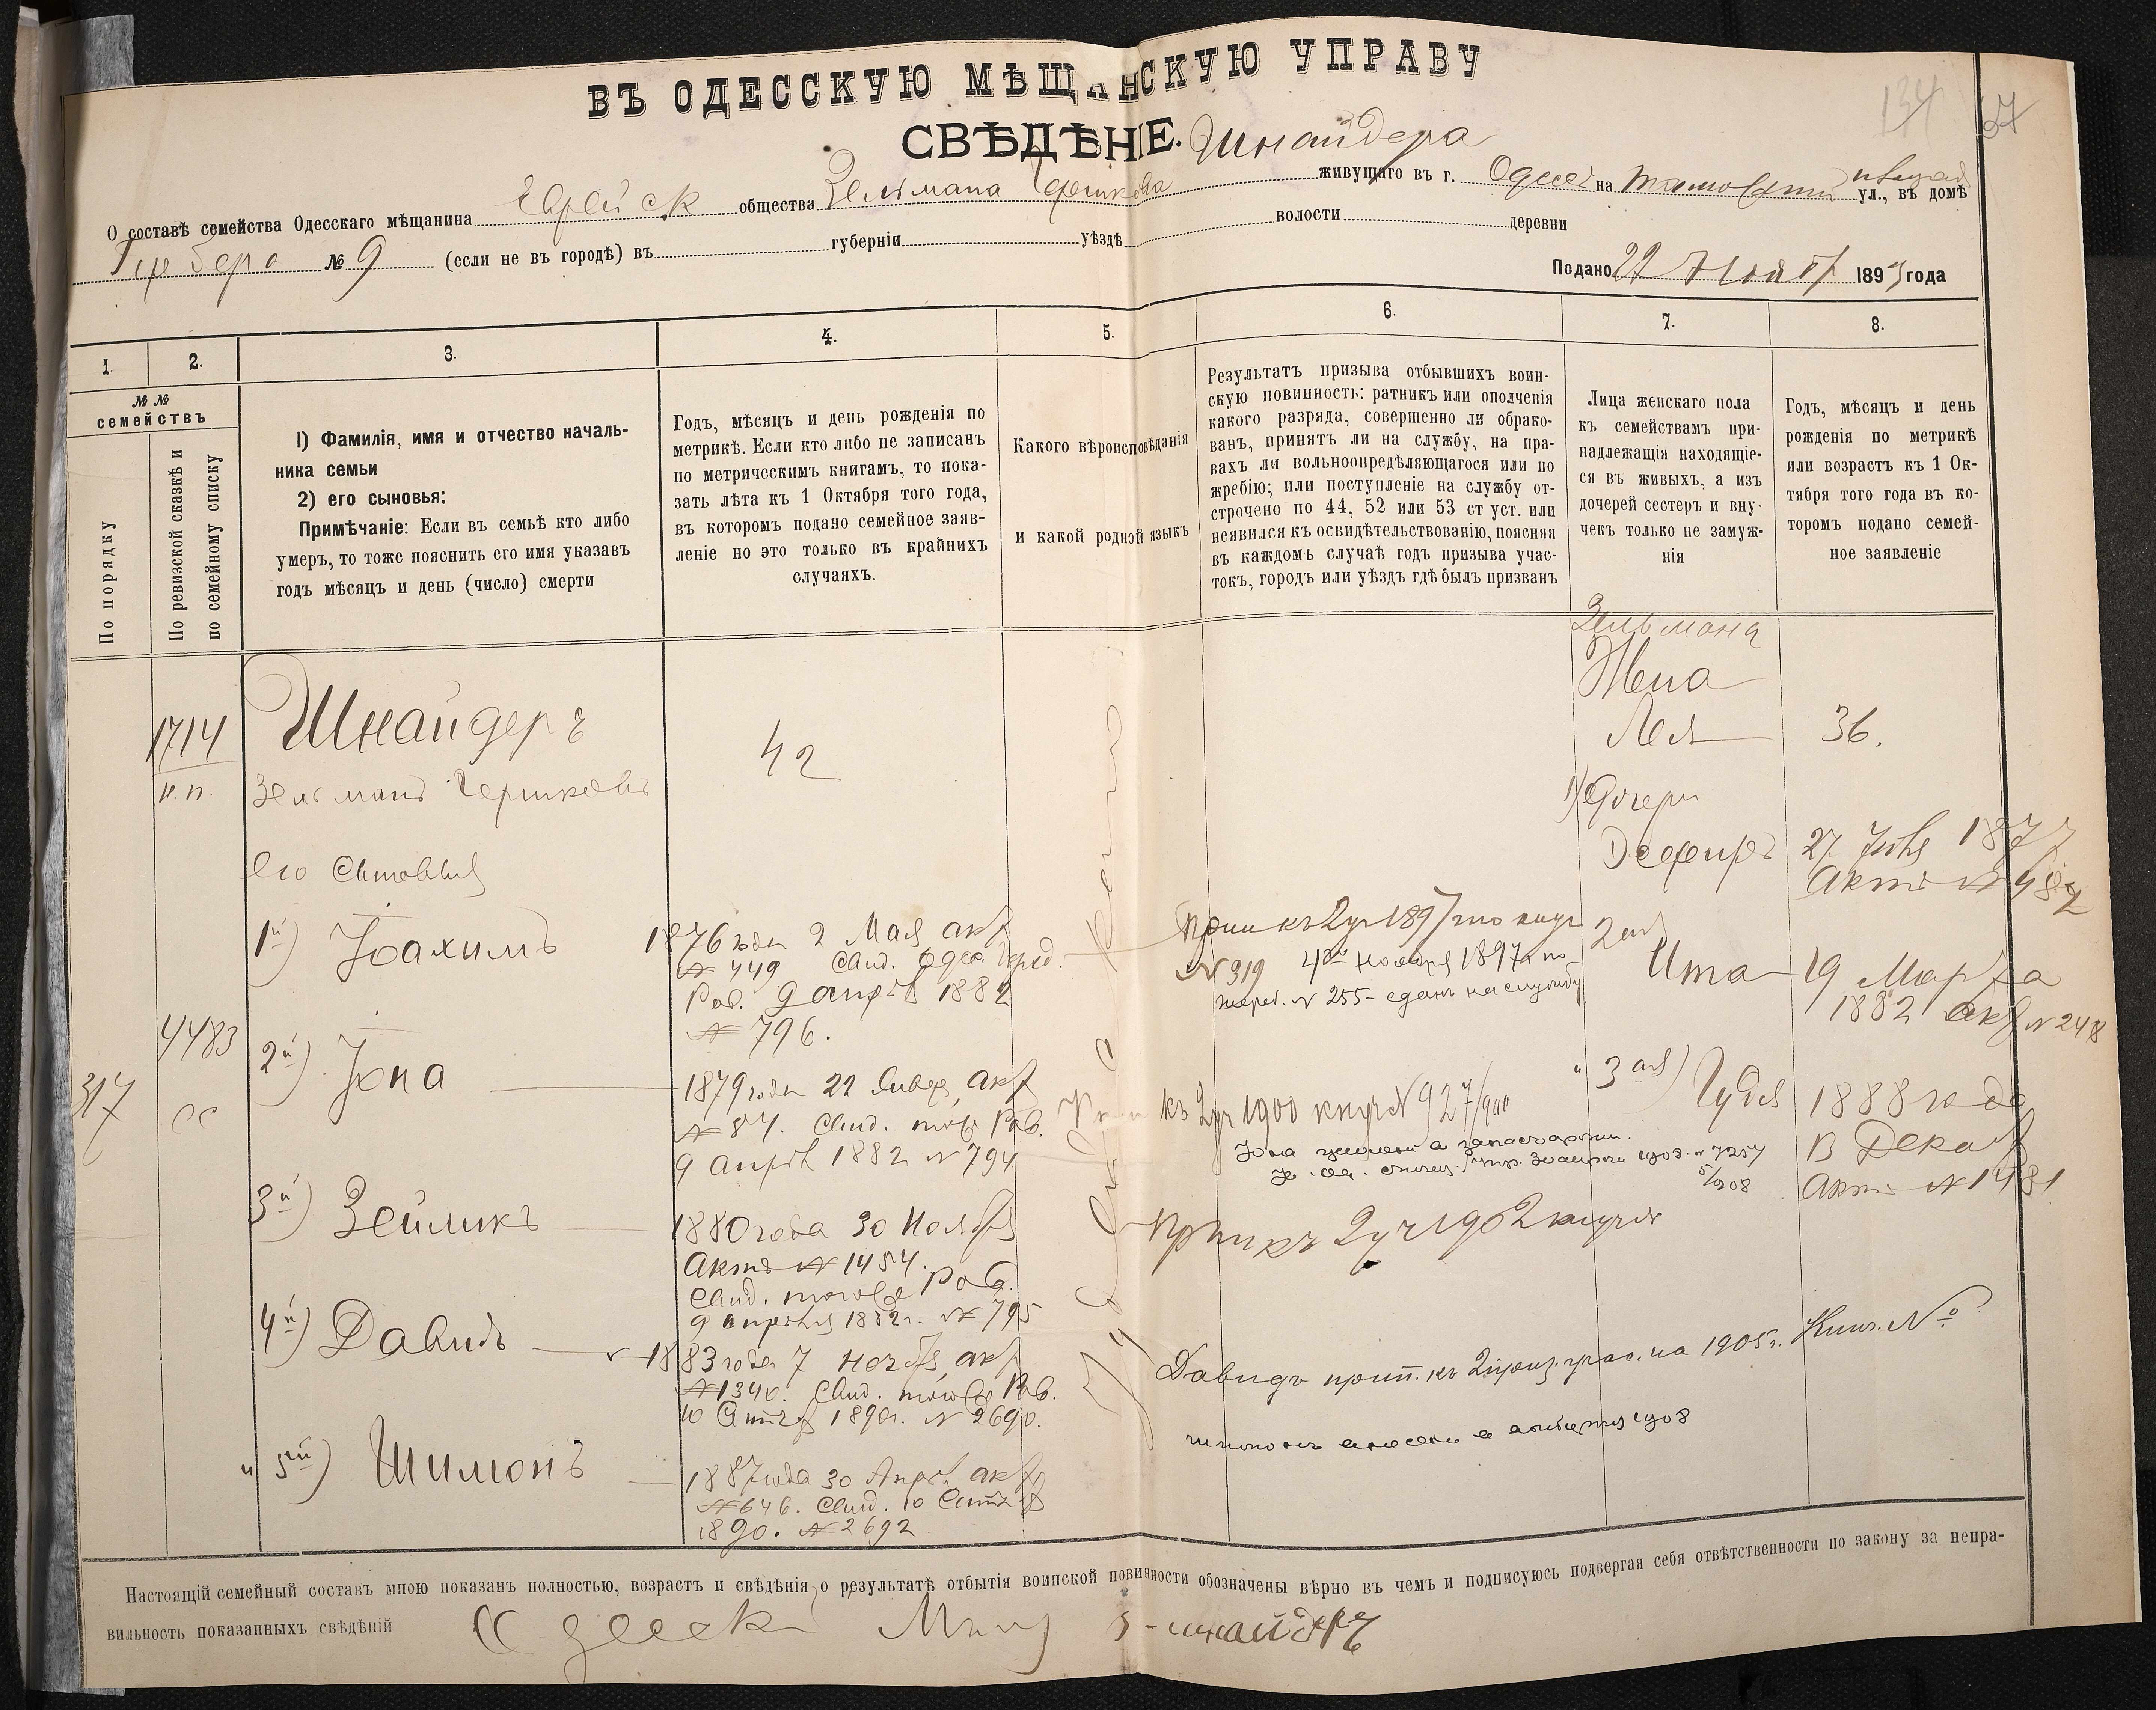 134 67
ВЪ ОДЕССКУЮ МѢЩАНСКУЮ УПРАВУ
СВѢДѢНІЕ. Шнайдера
О составѣ семейства Одесскаго мѣщанина Еврейск общества Зельмана Гершкова живущаго въ г. Одессѣ на ул., въ домѣ
№ 9 (если не въ городѣ) въ губерніи уѣздѣ волости деревни
Подано 22 Ноября 1893 года
1. 2. 3. 4. 5. 6. 7. 8.
№ № семействъ
По порядку
По ревизской сказкѣ и по семейному списку
I) Фамилія, имя и отчество началь-
ника семьи
2) его сыновья:
Примѣчаніе: Если въ семьѣ кто либо
умеръ, то тоже пояснить его имя указавъ
годъ мѣсяцъ и день (число) смерти
Годъ, мѣсяцъ и день рожденія по
метрикѣ. Если кто либо не записанъ
по метрическимъ книгамъ, то пока-
зать лѣта къ 1 Октября того года,
въ которомъ подано семейное заяв-
леніе но это только въ крайнихъ
случаяхъ.
Какого вѣроисповѣданія
и какой родной языкъ
Результатъ призыва отбывшихъ воин-
скую повинность: ратникъ или ополченія
какого разряда, совершенно ли обрако-
ванъ, принятъ ли на службу, на пра-
вахъ ли вольноопредѣляющагося или по
жребію; или поступленіе на службу от-
строчено по 44, 52 или 53 ст уст. или
неявился къ освидѣтельствованію, поясняя
въ каждомъ случаѣ годъ призыва учас-
токъ, городъ или уѣздъ гдѣ былъ призванъ
Лица женскаго пола
къ семействамъ при-
надлежащія находящіе-
ся въ живыхъ, а изъ
дочерей сестеръ и вну-
чекъ только не замуж-
нія
Годъ, мѣсяцъ и день
рожденія по метрикѣ
или возрастъ къ 1 Ок-
тября того года въ ко-
торомъ подано семей-
ное заявленіе
1714
Шнайдеръ
Зельманъ Гершковъ
42
Зельмана
Жена
Лея
36.
Его сыновья
1) Дочери
Эсфиръ
27 1877
Актъ № 482
1й) Іоахимъ
1876 года 2 Мая акт
№ 449 Свид. Одес.
Рав. 9 апрѣля 1882
№ 796.
Прип къ 2 уч 1897
№ 319 4го ноября 1897 г. по
жреб. № 255 - сданъ на службу
2ая
Ита
19 Марта
1882 акт № 248
4483
2й) Іона
1879 года 22 Янвр. акт
№ 84. Свид. того Рав.
9 апрѣля 1882 № 794
къ 2 уч 1900 книж № 927/900
Іона
№ 7257
5/908
3ая) Гудя
1888 года
8 Декаб
Актъ № 1481
317
СС
3й) Зейликъ
1880 года 30 Ноября
Актъ № 1454.
Свид. того Рав.
9 апрѣля 1882 г. № 795
Прип къ 2 уч 1902
4й) Давидъ
1883 года 7 Ноября акт
№ 1340. Свид. того Рав.
1890 г. № 2690.
Давидъ прип. къ 2 на 1905 г. Книж. №
и 5й) Шимонъ
1887 года 30 Апрѣл. акт
№ 646. Свид. 10
1890. № 2692
1908
Настоящій семейный составъ мною показанъ полностью, возрастъ и свѣдѣнія о результатѣ отбытія воинской повинности обозначены вѣрно въ чемъ и подписуюсь подвергая себя отвѣтственности по закону за непра-
вильность показанныхъ свѣдѣній Одеск Мѣщ З-Шнайдеръ